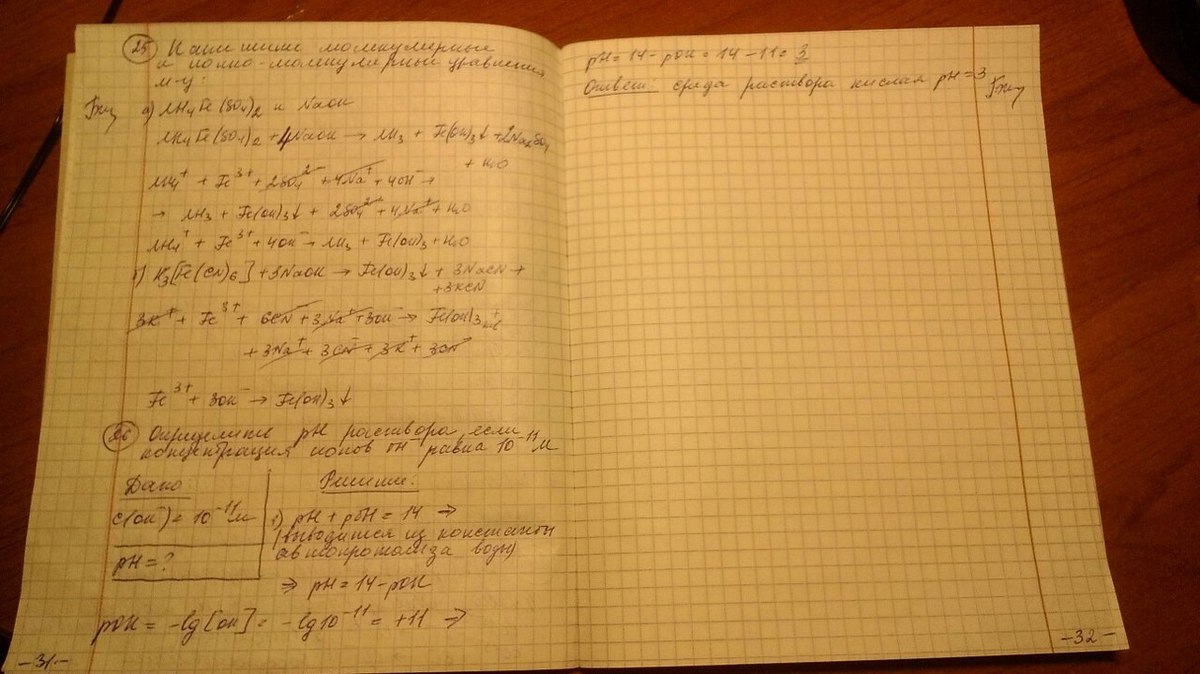 25 Напишите молекулярные
и ионно-молекулярные уравнения
м-у:
а) NH₄Fe(SO₄)₂ и NaOH
NH₄Fe(SO₄)₂ + 4NaOH → NH₃ + Fe(OH)₃↓ + 2Na₂SO₄
+ H₂O
NH₄⁺ + Fe³⁺ + 2SO₄²⁻ + 4Na⁺ + 4OH⁻ →
→ NH₃ + Fe(OH)₃↓ + 2SO₄²⁻ + 4Na⁺ + H₂O
NH₄⁺ + Fe³⁺ + 4OH⁻ → NH₃ + Fe(OH)₃ + H₂O
б) K₃[Fe(CN)₆] + 3NaOH → Fe(OH)₃↓ + 3NaCN +
+3KCN
3K⁺ + Fe³⁺ + 6CN⁻ + 3Na⁺ + 3OH⁻ → Fe(OH)₃ +
+ 3Na⁺ + 3CN⁻ + 3K⁺ + 3CN⁻
Fe³⁺ + 3OH⁻ → Fe(OH)₃↓
26 Определить pH раствора если
концентрация ионов OH⁻ равна 10⁻¹¹ М
Дано
C(OH⁻) = 10⁻¹¹ М
pH = ?
Решение:
1) pH + pOH = 14 ⇒
(выводится из константы
автопротолиза воды)
⇒ pH = 14 - pOH
pOH = -lg[OH] = -lg10⁻¹¹ = +11 ⇒
-31-
pH = 14 - pOH = 14 - 11 = 3
Ответ: среда раствора кислая pH = 3
-32-